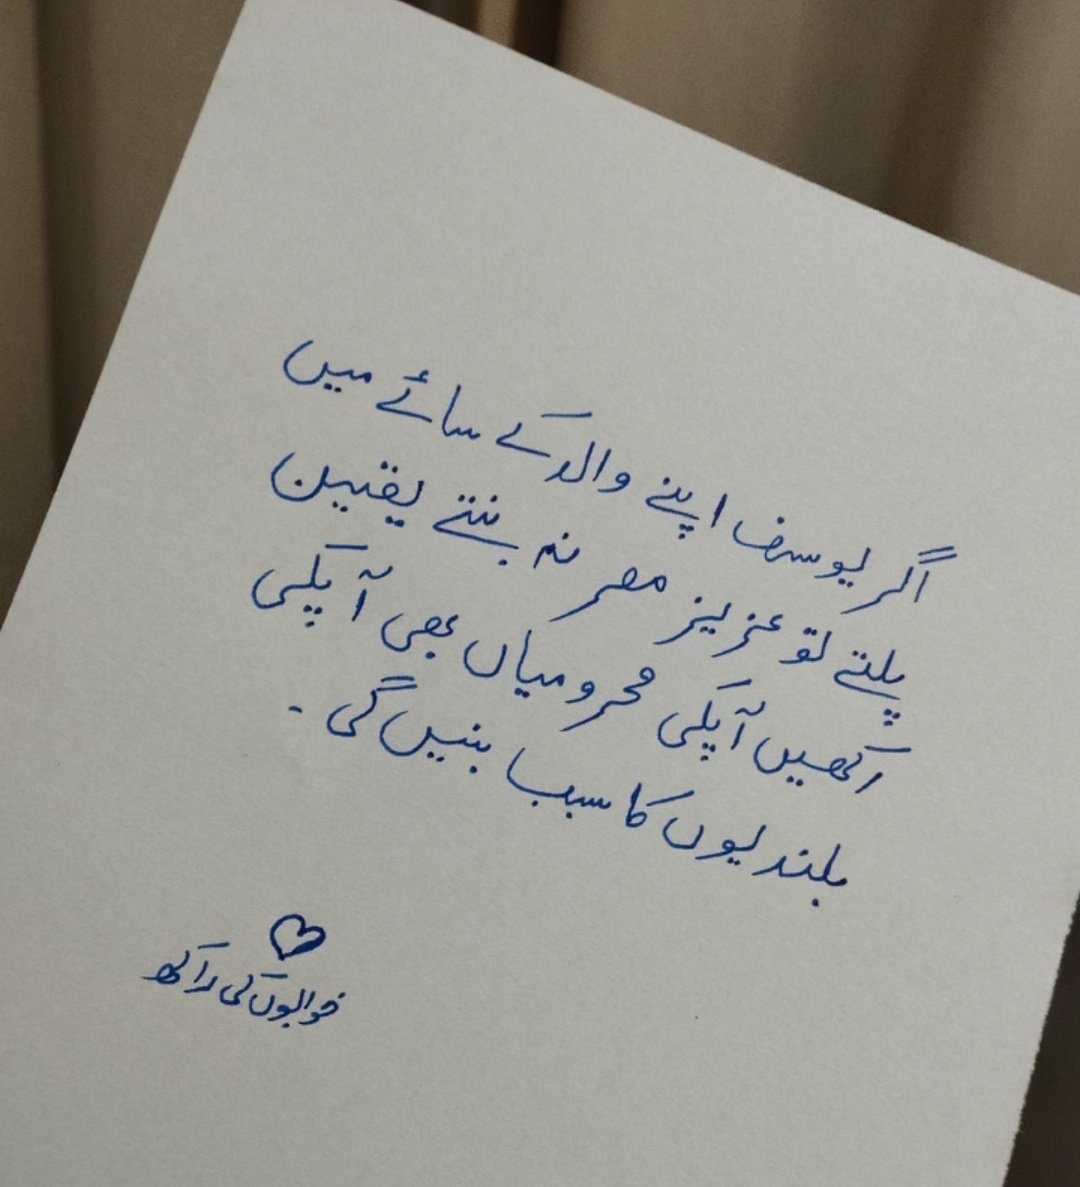 اگر یوسف اپنے والد کے سائے میں
پلتے تو عزیز مصر نہ بنتے یقین
رکھیں آپکی محرومیاں بھی آپکی
بلندیوں کا سبب بنیں گی ۔
خوابوں کی راکھ